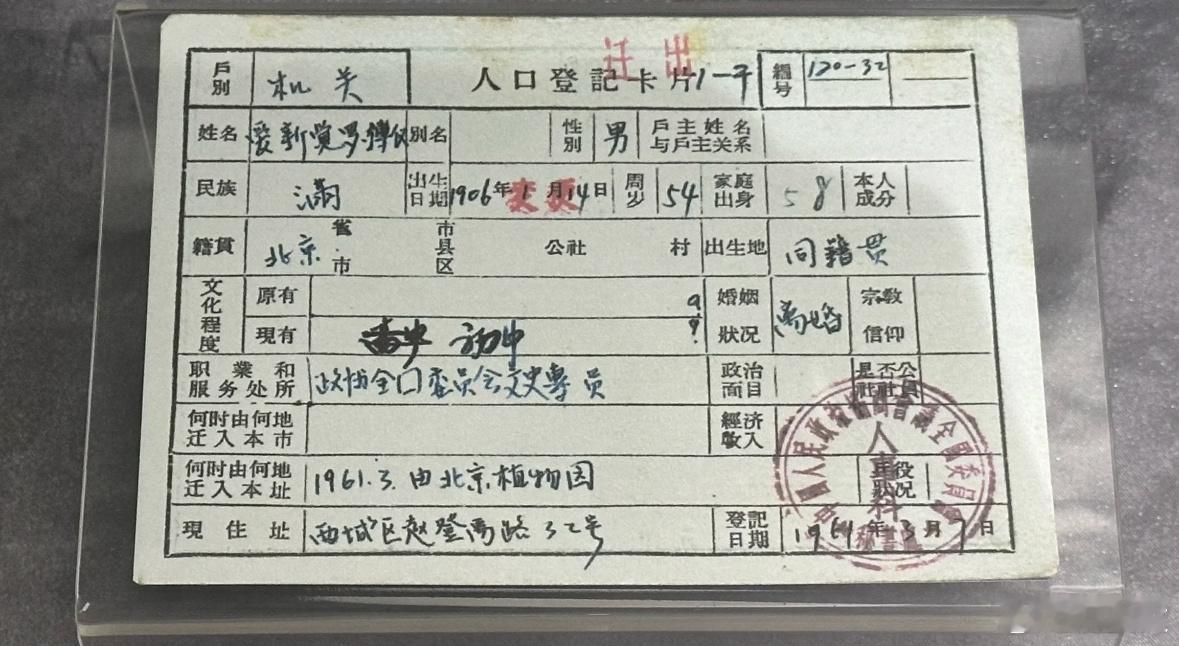 迁出
戶別 机关 人口登記卡片1一平 編号 120-32
姓名 愛新覚罗溥仪 別名 性別 男 戶主姓名与戶主关系
民族 满 出生日期 1906年1月14日 变更 周岁 54 家庭出身 58 本人成分
籍貫 北京 省市 市县区 公社 村 出生地 同籍贯
文化程度 原有 婚姻狀况 离婚 宗教信仰
現有 初中
职業和服务处所 政协全囗委员会文史専员 政治面目 是否公社社員
何时由何地迁入本市 經济收入
何时由何地迁入本址 1961.3.由北京植物园 兵役狀况
現住址 西城区赵登禹路32号 登記日期 1961年3月7日
中國人民政治協商會議全國委員會
人事科
秘書處